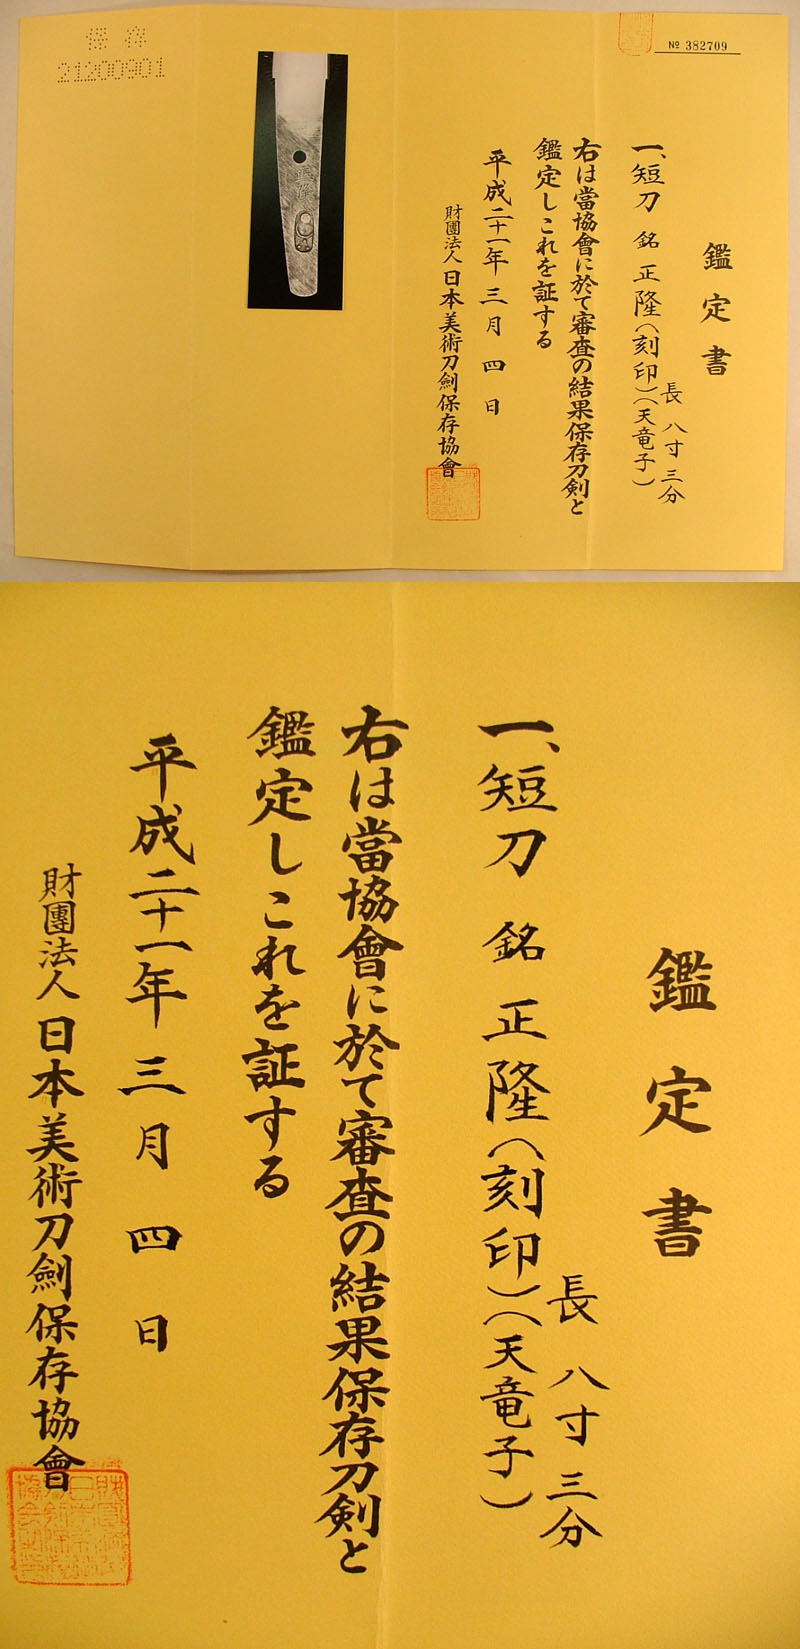 保存
21200901
正隆
№ 382709
鑑定書
一、短刀 銘 正隆(刻印)(天竜子)
長 八寸三分
右は當協會に於て審査の結果保存刀剣と
鑑定しこれを証する
平成二十一年 三月 四日
財團法人 日本美術刀劍保存協會
鑑定書
一、短刀 銘 正隆(刻印)(天竜子)
長 八寸三分
右は當協會に於て審査の結果保存刀剣と
鑑定しこれを証する
平成二十一年 三月 四日
財團法人 日本美術刀劍保存協會